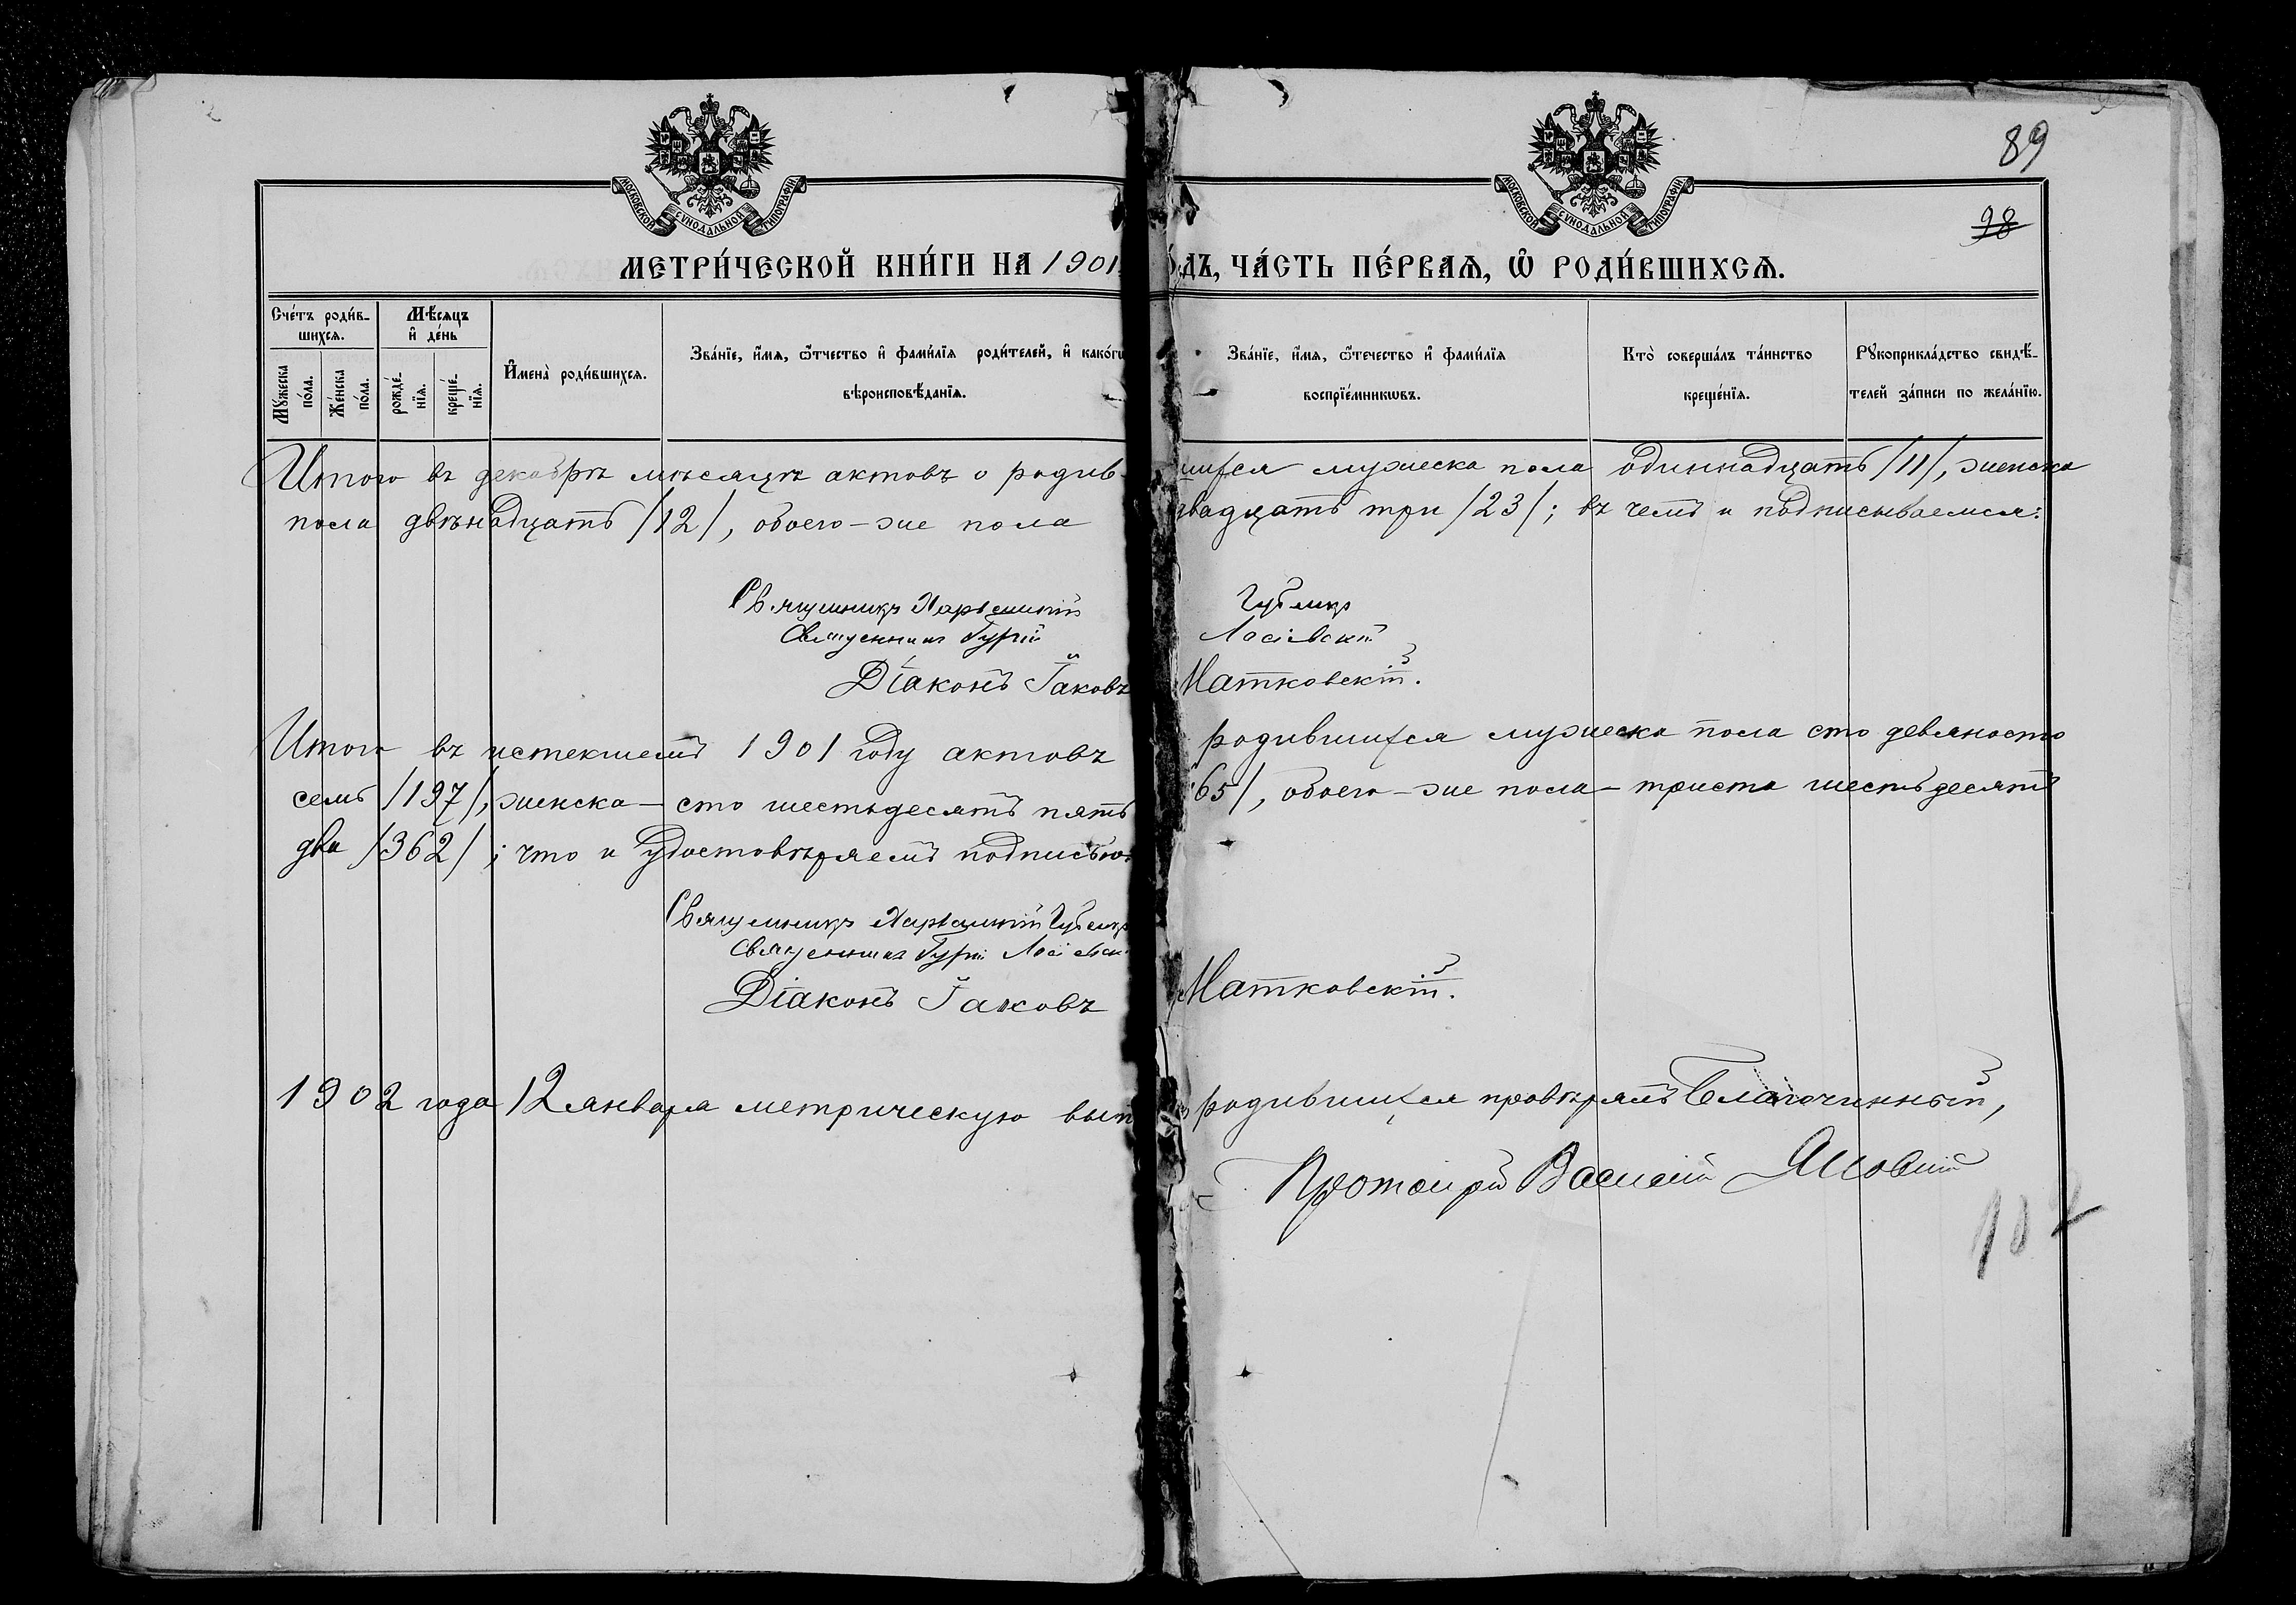 МОСКОВСКОЙ СѴНОДАЛЬНОЙ ТИПОГРАФІИ
МОСКОВСКОЙ СѴНОДАЛЬНОЙ ТИПОГРАФІИ
89
98
МЕТРИ́ЧЕСКОЙ КНИ́ГИ НА 1901 ДЪ, ЧА́СТЬ ПЕ́РВАѦ, Ѡ҆ РОДИ́ВШИХСѦ.
Сче́тъ роди́в-
шихсѧ.
Мꙋ́жеска
по́ла.
Же́нска
по́ла.
Мѣ́сѧцъ
и҆ де́нь
рожде́-
нїѧ.
креще́-
нїѧ.
И҆мена̀ роди́вшихсѧ.
Зва́нїе, и҆́мѧ, ѻ҆́тчество и҆ фами́лїѧ роди́телей, и҆ како́гѡ
вѣроисповѣ́данїѧ.
Зва́нїе, и҆́мѧ, ѻ҆́течество и҆ фами́лїѧ
воспрїе́мникѡвъ.
Кто̀ соверша́лъ та́инство
креще́нїѧ.
Рꙋкоприкла́дство свидѣ́-
телей за́писи по жела́нїю.
Итого въ декабрѣ мѣсяцѣ актовъ о родив-шихся мужеска пола одиннадцать /11/, женска
пола двѣнадцать /12/, обоего-же пола двадцать три /23/; въ чемъ и подписываемся:
Священникъ Харлампій Губикъ
Священникъ Гурій Лосіевскій
Діаконъ Іаковъ Матковскій.
Итого въ истекшемъ 1901 году актовъ родившихся мужеска пола сто девяносто
семь /197/, женска – сто шестьдесятъ пять 65/, обоего-же пола – триста шестьдесятъ
два /362/; что и удостовѣряемъ подписью:
Священникъ Харлампій Губикъ
Священникъ Гурій Лосіевск
Діаконъ Іаковъ Матковскій.
1902 года 12 января метрическую вып родившихся провѣрялъ Благочинный,
Протоіерей Василій
107